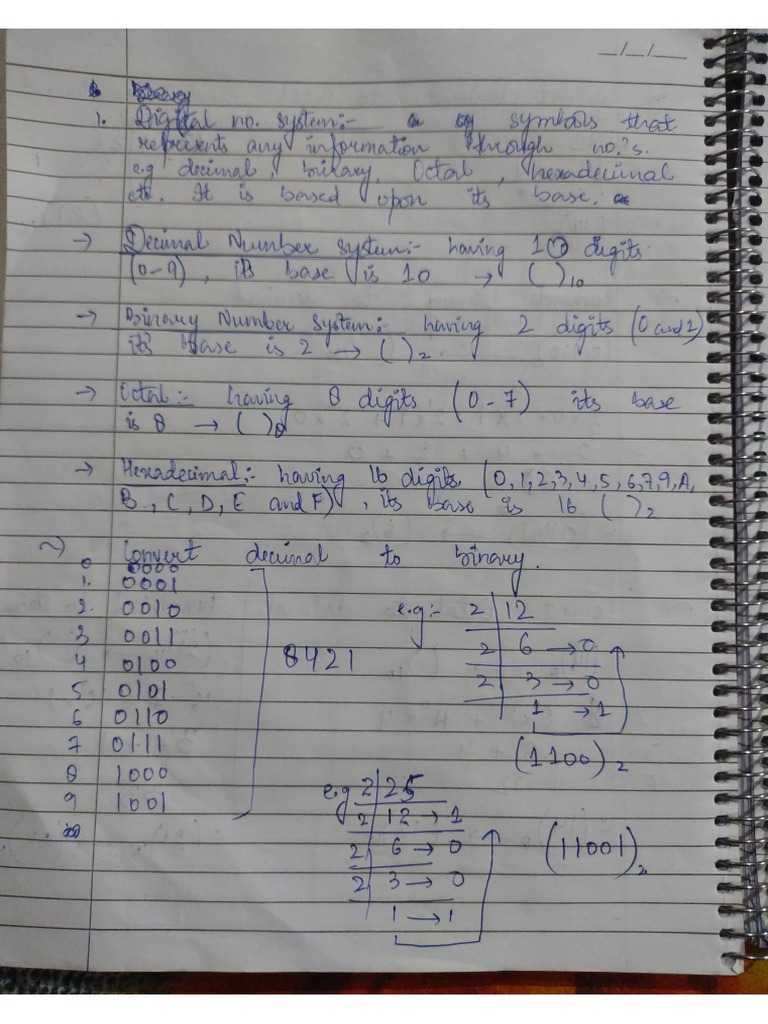 __/__/__
Binary
1. Digital no. system:- symbols that
represents any information through no.'s.
e.g decimal, binary, Octal, hexadecimal
etc. It is based upon its base.
→ Decimal Number system:- having 10 digits
(0-9), its base is 10 → ( )10
→ Binary Number System:- having 2 digits (0 and 1)
its base is 2 → ( )2
→ Octal:- having 8 digits (0-7) its base
is 8 → ( )8
→ Hexadecimal:- having 16 digits (0,1,2,3,4,5,6,7,9,A,
B, C, D, E and F), its base is 16 ( )2
~) Convert decimal to binary.
0 0000
1. 0001
2. 0010
3 0011
4 0100
5 0101
6 0110
7 0111
8 1000
9 1001
8421
e.g:- 2 | 12
2 | 6 → 0
2 | 3 → 0
1 → 1
(1100)2
e.g 2 | 25
2 | 12 → 1
2 | 6 → 0
2 | 3 → 0
1 → 1
(11001)2